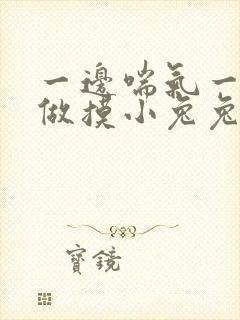 一邊喘氣一
做摸小兔兔
寶鏡